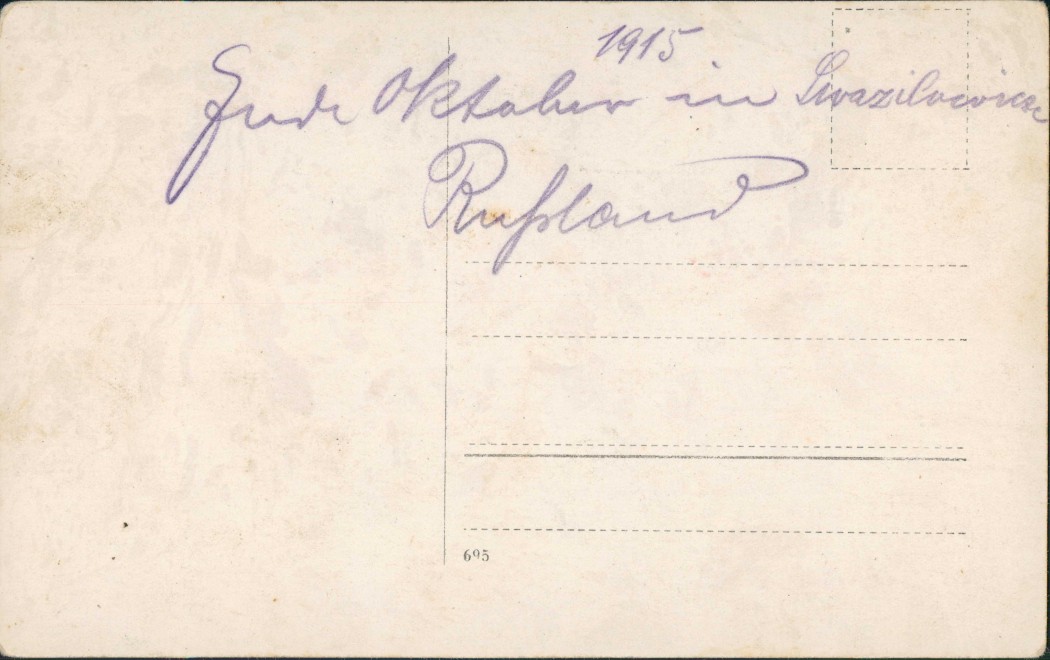 1915
Ende Oktober in
Rußland
695